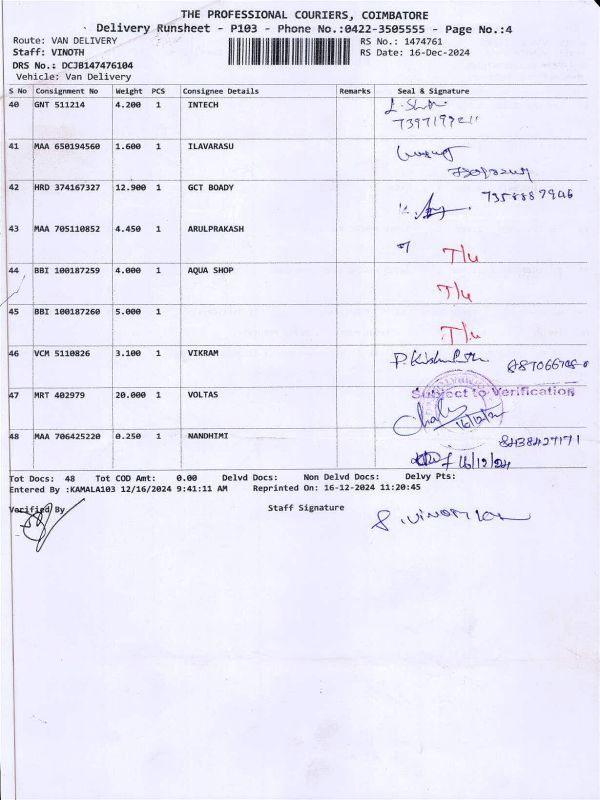 THE PROFESSIONAL COURIERS, COIMBATORE
Delivery Runsheet - P103 - Phone No.:0422-3505555 - Page No.:4
Route: VAN DELIVERY RS No.: 1474761
Staff: VINOTH RS Date: 16-Dec-2024
DRS No.: DCJB147476104
Vehicle: Van Delivery
S No Consignment No Weight PCS Consignee Details Remarks Seal & Signature
40 GNT 511214 4.200 1 INTECH
41 MAA 650194560 1.600 1 ILAVARASU
42 HRD 374167327 12.900 1 GCT BOADY
43 MAA 705110852 4.450 1 ARULPRAKASH
44 BBI 100187259 4.000 1 AQUA SHOP
45 BBI 100187260 5.000 1
46 VCM 5110826 3.100 1 VIKRAM
47 MRT 402979 20.000 1 VOLTAS Subject to Verification
16/12/24
48 MAA 706425220 0.250 1 NANDHIMI 8438427171
16/12/24
Tot Docs: 48 Tot COD Amt: 0.00 Delvd Docs: Non Delvd Docs: Delvy Pts:
Entered By :KAMALA103 12/16/2024 9:41:11 AM Reprinted On: 16-12-2024 11:20:45
Verified By Staff Signature